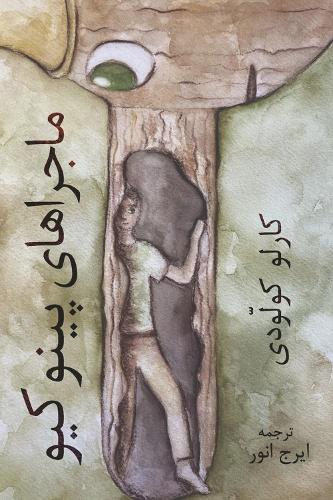 ماجراهای پینوکیو
کارلو کولّودی
ترجمه
ایرج انور